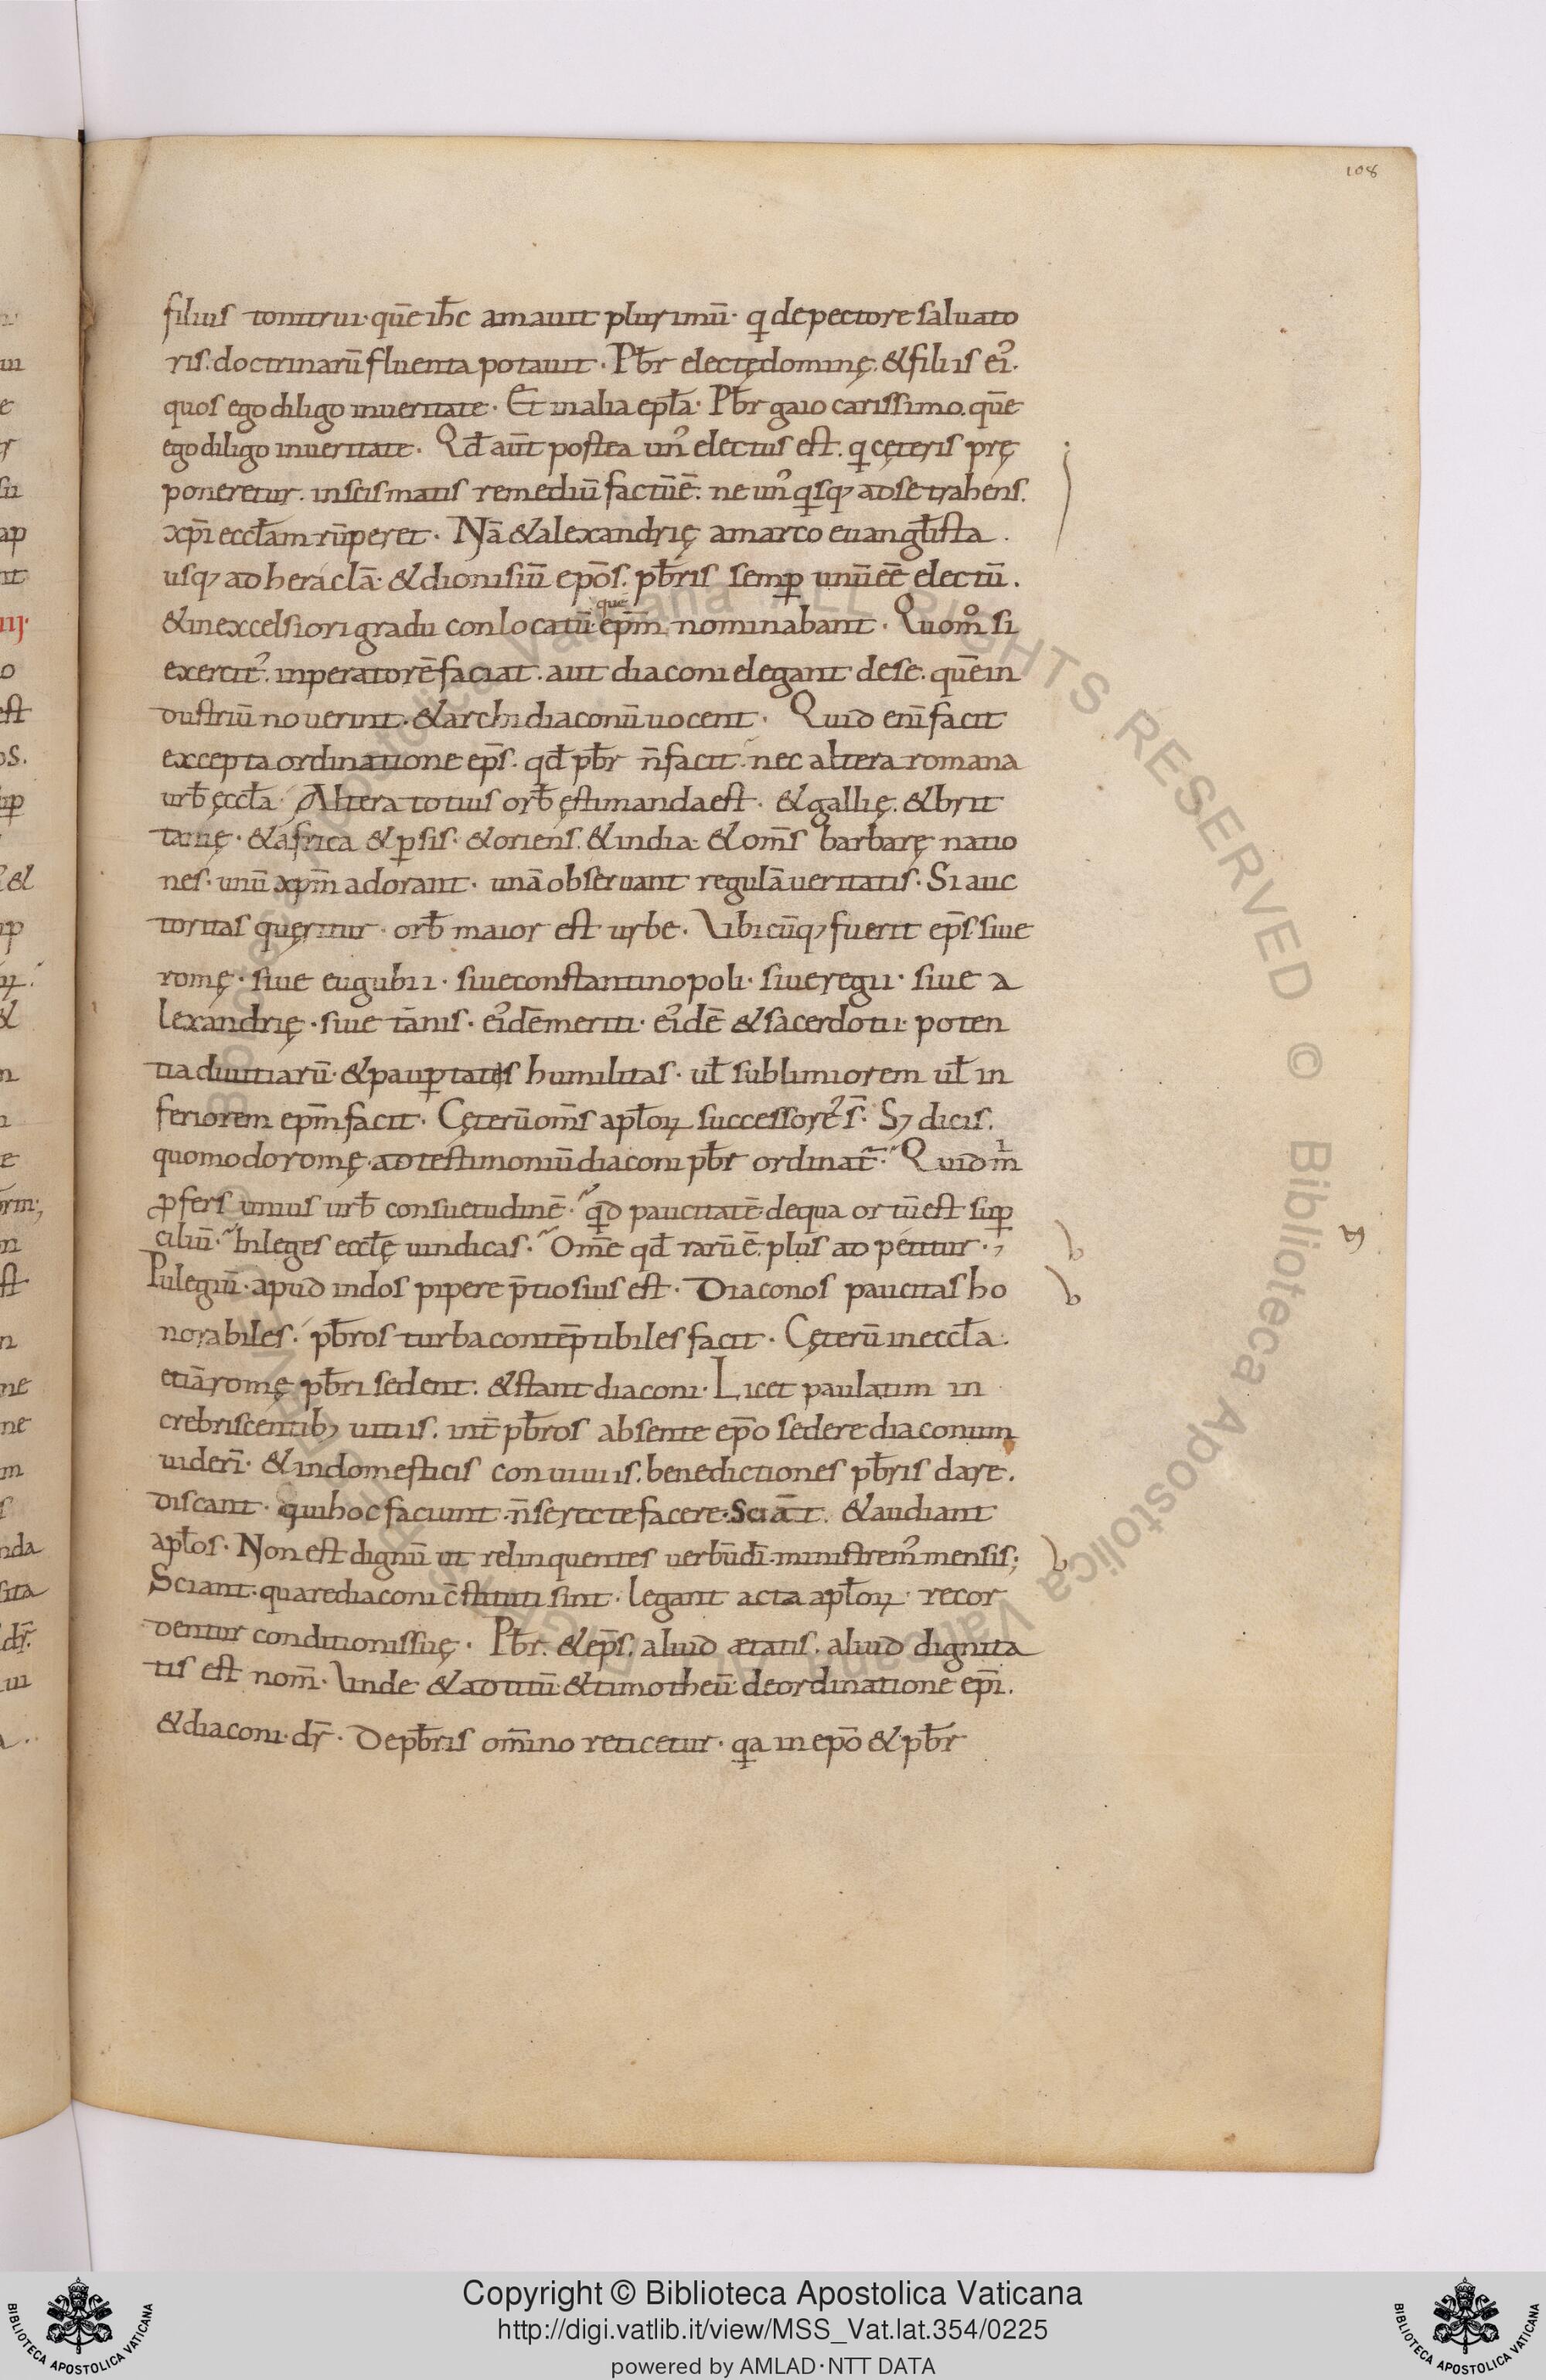 108
filius tonitrui· quē ihc̄ amauit plurimū· q̣ depectore saluato
ris. doctrinarū fluenta potauit· Pb̄r electędominę. &filiis ei᾽.
quos ego diligo inueritate· Et inalia epl̄a· Pb̄r gaio carissimo. quē
ego diligo inueritate· Qd̄ aut̄ postea un᾽ electus est. q cęteris prę
poneretur. inscismatis remediū factūē: ne un᾽ qsq; adse trahens.
xp̄i eccl̄am rūperet· Nā &alexandrię amarco euangl̄ista.
usq; ad heraclā· &dionisiū ep̄os. pb̄ris semꝑ unūeē electū.
que
&inexcelsiori gradu conlocatū· ep̄m nominabant· Quom̊ si
exercit᾽. inperatorē faciat. aut diaconi elegant dese. quē in
dustriū nouerint· &archidiaconū uocent· Quid eni̅ facit
excepta ordinatione ep̄s. qd̄ pb̄r n̄ facit· nec altera romana
urb̄ ęccl̄a· Altera totius orb̄ ęstimandaest· &gallię. &brit
tanię· &africa &ꝑsis· &oriens. &india· &om̄s barbarę natio
nes· unū xp̄m adorant· unā obseruant regulā ueritatis· Si auc
toritas quęritur· orb̄ maior est urbe· Vbicūq; fuerit ep̄s. siue
romę· siue eugubii· siueconstantinopoli· siueregii· siue a
lexandrię· siue tanis· ei᾽dēmeriti· ei᾽dē &sacerdotii· poten
tia diuitiarū· &pauꝑtatis humilitas· ul̄ sublimiorem ul̄ in
feriorem ep̄m facit· Cęterūom̄s apl̄oꝝ successore᾽ s̄· S; dicis.
quomodoromę· adtestimoniūdiaconi pb̄r ordinat̄· Quid m
ꝓfers unius urb̄ consuetudinē· qd paucitatē dequa ortūest suꝑ
ciliū· Inleges eccl̄ę uindicas· Om̄e qd̄ rarū ē. plus adpetitur·,
Pulegiū· apud indos pipere p̄tiosius est· Diaconos paucitas ho
norabiles· pb̄ros turbacontēptibiles facit· Cęterū ineccl̄a:
etiāromę pb̄ri sedent: &stant diaconi· Licet paulatim in
crebriscentib; uitiis. int̄ pb̄ros absente ep̄o sedere diaconum
uideri̅· &indomesticis conuiuiis. benedictiones pb̄ris dare.
discant· quihoc faciunt· n̄serecte facere· Sciāt. &audiant
apl̄os· Non est dignū ut relinquentes uerbūdi̅· ministrem᾽ mensis;
Sciant: quarediaconi c̄stituti sint· legant acta apl̄oꝝ· recor
dentur conditionissuę· Pb̄r. &ep̄s. aliud ætatis. aliud dignita
tis est nom̄· Vnde &adtitū· &timotheū· deordinatione ep̄i.
&diaconi· dr̄· Depb̄ris om̄ino reticetur· qa inep̄o &pb̄r
Copyright © Biblioteca Apostolica Vaticana
http://digi.vatlib.it/view/MSS_Vat.lat.354/0225
powered by AMLAD·NTT DATA